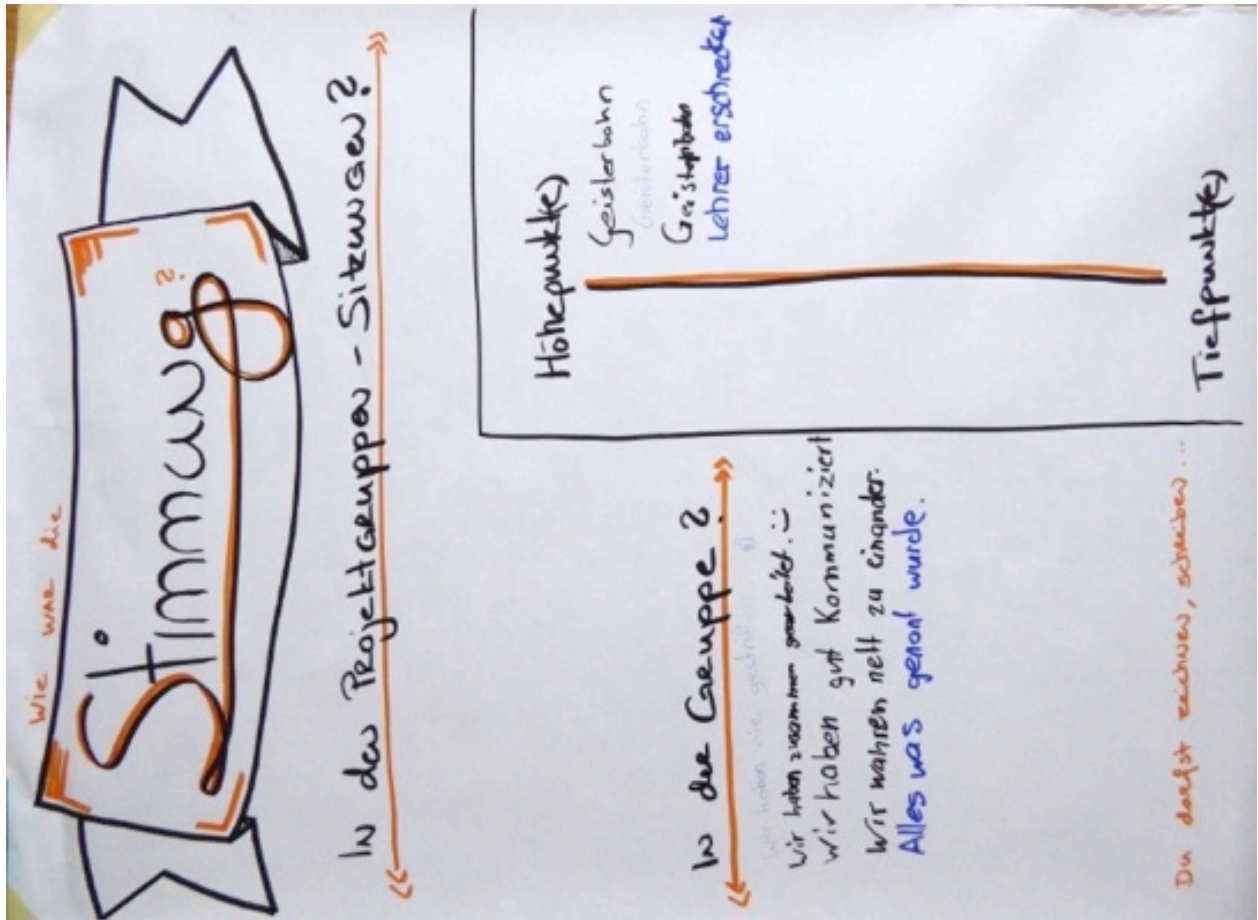 Wie war die
Stimmung?
In den Projektgruppen-Sitzungen?
In der Gruppe?
Wir haben nie gestritten
Wir haben zusammen gearbeitet. :)
Wir haben gut Kommuniziert
Wir wahren nett zu einander.
Alles was genant wurde.
Höhepunkt(e)
Geisterbahn
Geisterbahn
Geisterbahn
Lehrer erschrecken
Tiefpunkt(e)
Du darfst zeichnen, schreiben...